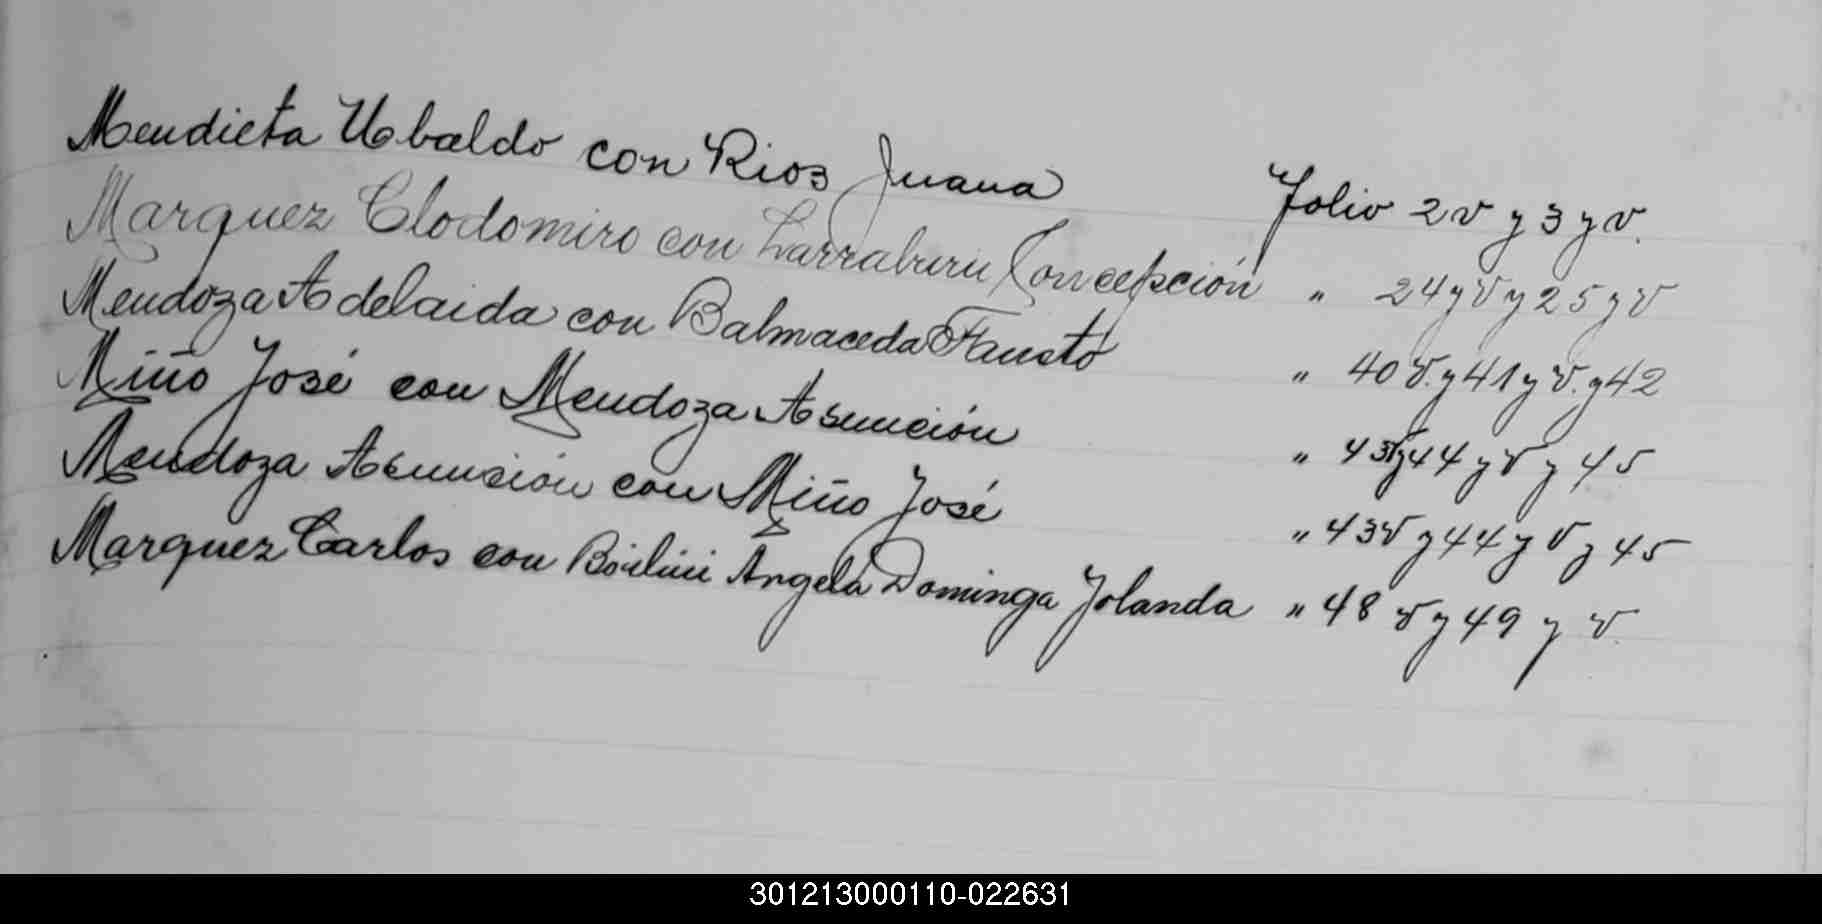 Mendieta Ubaldo con Rios Juana Folio 2 v y 3 y v.
Marquez Clodomiro con Larraburu Concepción " 24 y v y 25 y v
Mendoza Adelaida con Balmaceda Fausto " 40 v. y 41 y v. y 42
Miño José con Mendoza Asunción " 43 v y 44 y v y 45
Mendoza Asunsión con Miño José " 43 v y 44 y v y 45
Marquez Carlos con Angela Dominga Jolanda " 48 v y 49 y v.
301213000110-022631